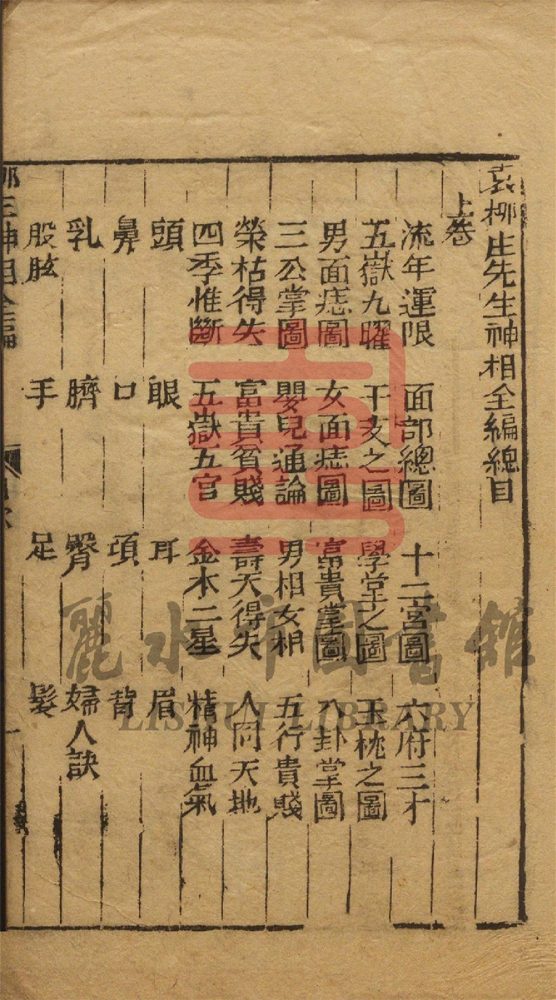 袁柳庄先生神相全編總目
上卷
流年運限 面部總圖 十二宮圖 六府三才
五嶽九曜 干支之圖 學堂之圖 玉枕之圖
男面痣圖 女面痣圖 富貴掌圖 八卦掌圖
三公掌圖 嬰兒通論 男相女相 五行貴賤
榮枯得失 富貴貧賤 壽夭得失 人同天地
四季惟斷 五嶽五官 金木二星 精神血氣
頭 眼 耳 眉
鼻 口 項 背
乳 臍 臀 婦人訣
股肱 手 足 髮
柳庄神相全編
一
麗水市圖書館
LISHUI LIBRARY